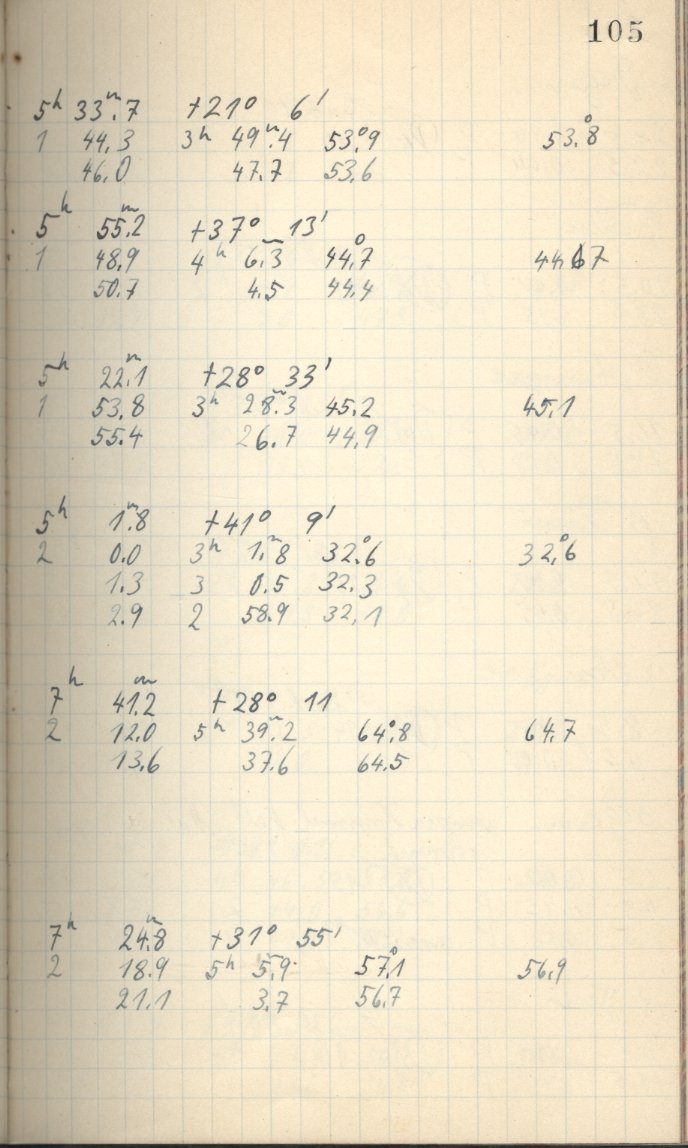 105
5h 33m.7 +21° 6'
1 44.3 3h 49m.4 53°.9 53°.8
46.0 47.7 53.6
5h 55m.2 +37° 13'
1 48.9 4h 6m.3 44°.7 44.67
50.7 4.5 44.4
5h 22m.1 +28° 33'
1 53.8 3h 28m.3 45.2 45.1
55.4 26.7 44.9
5h 1m.8 +41° 9'
2 0.0 3h 1m.8 32°.6 32°.6
1.3 3 0.5 32.3
2.9 2 58.9 32.1
7h 41m.2 +28° 11
2 12.0 5h 39m.2 64°.8 64.7
13.6 37.6 64.5
7h 24m.8 +31° 55'
2 18.9 5h 5m.9 57°.1 56.9
21.1 3.7 56.7